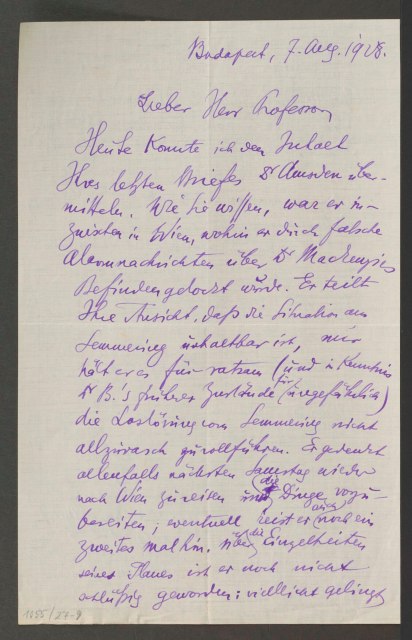 Budapest, 7. Aug. 1928.
Lieber Herr Professor
Heute konnte ich den Inhalt
Ihres letzten Briefes Dr Amsden über-
mitteln. Wie Sie wissen, war er in-
zwischen in Wien, wohin er durch falsche
Alarmnachrichten über Dr Mackenzies
Befinden gelockt wurde. Er teilt
Ihre Ansicht, daß die Situation am
Semmering unhaltbar ist, nur
hält er es für ratsam (und in Kenntnis
Dr B.'s früherer Zustände für ungefährlich)
die Loslösung vom Semmering nicht
allzurasch zu vollführen. Er gedenkt
allenfalls nächsten Samstag wieder
nach Wien zu reisen und die Dinge vorzu-
bereiten; eventuell reist er auch noch ein
zweites mal hin. Über die Einzelheiten
seines Planes ist er noch nicht
schlüßig geworden: vielleicht gelingt
1655/27-9